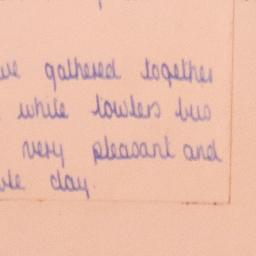 we gathered together
while Lowlers bus
very pleasant and
day.